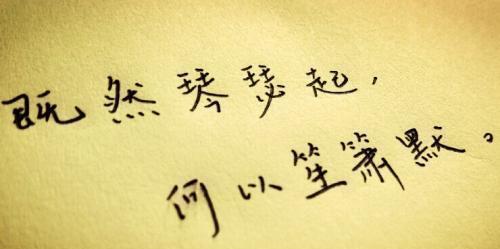 既然琴瑟起，
何以笙箫默。